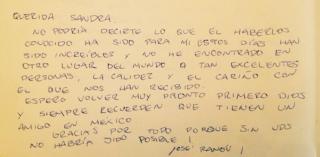 QUERIDA SANDRA.
NO PODRIA DECIRTE LO QUE EL HABERLOS
CONOCIDO HA SIDO PARA MI ESTOS DIAS HAN
SIDO INCREIBLES Y NO HE ENCONTRADO EN
OTRO LUGAR DEL MUNDO A TAN EXCELENTES
PERSONAS, LA CALIDEZ Y EL CARIÑO CON
EL QUE NOS HAN RECIBIDO.
ESPERO VOLVER MUY PRONTO PRIMERO DIOS
Y SIEMPRE RECUERDEN QUE TIENEN UN
AMIGO EN MEXICO
GRACIAS POR TODO PORQUE SIN UDS
NO HABRIA SIDO POSIBLE!
JOSÉ